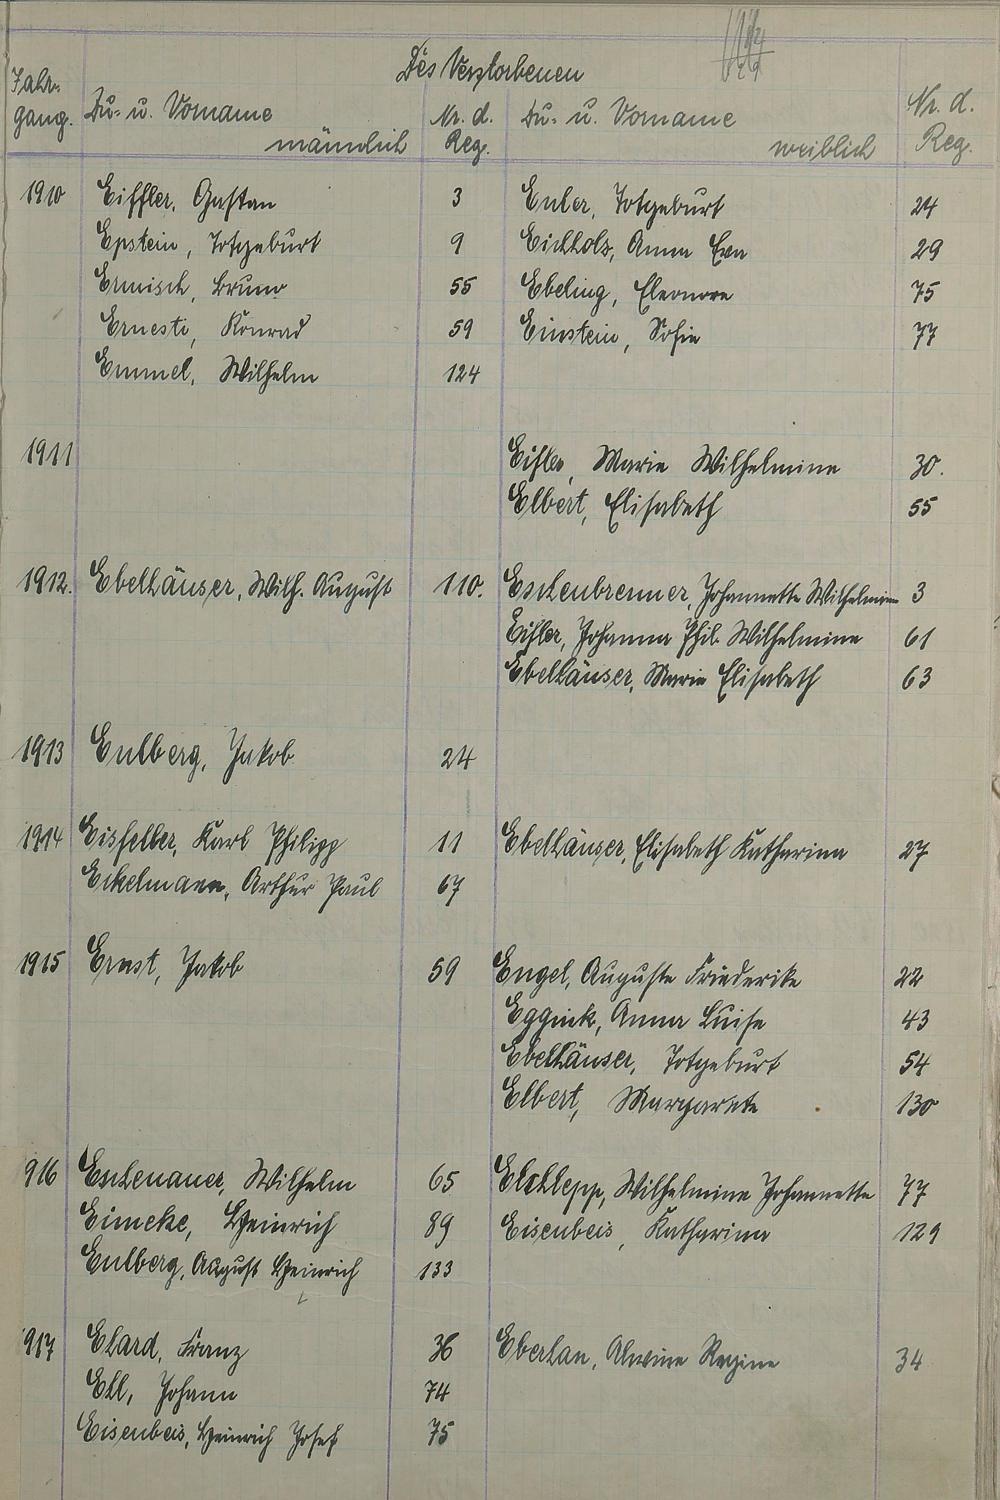 Des Verstorbenen
Jahr-
gang.
Zu- u. Vorname
männlich
Nr. d.
Reg.
Zu- u. Vorname
weiblich
Nr. d.
Reg.
1910 Eiffler, Gastan 3 Euler, Totgeburt 24
Epstein, Totgeburt 9 Eichholz, Anna Eva 29
Ermisch, Bruno 55 Ebeling, Eleonore 75
Ernesti, Konrad 59 Einstein, Sofie 77
Emmel, Wilhelm 124
1911 Eifler, Marie Wilhelmine 30.
Elbert, Elisabeth 55
1912. Ebelhäuser, Wilh. August 110. Eschenbrenner, Johannette Wilhelmine 3
Eifler, Johanna Phil. Wilhelmine 61
Ebelhäuser, Marie Elisabeth 63
1913 Eulberg, Jakob 24
1914 Eisfeller, Karl Philipp 11 Ebelhäuser, Elisabeth Katharina 27
Eikelmann, Arthur Paul 67
1915 Ernst, Jakob 59 Engel, Auguste Friederike 22
Eggink, Anna Luise 43
Ebelhäuser, Totgeburt 54
Elbert, Margarete 130
916 Eschenauer, Wilhelm 65 Elchlepp, Wilhelmine Johannette 77
Eimeke, Heinrich 89 Eisenbeis, Katharina 129
Eulberg, August Heinrich 133
917 Ehard, Franz 36 Eberhan, Alwine Regine 34
Ell, Johann 74
Eisenbeis, Heinrich Josef 75